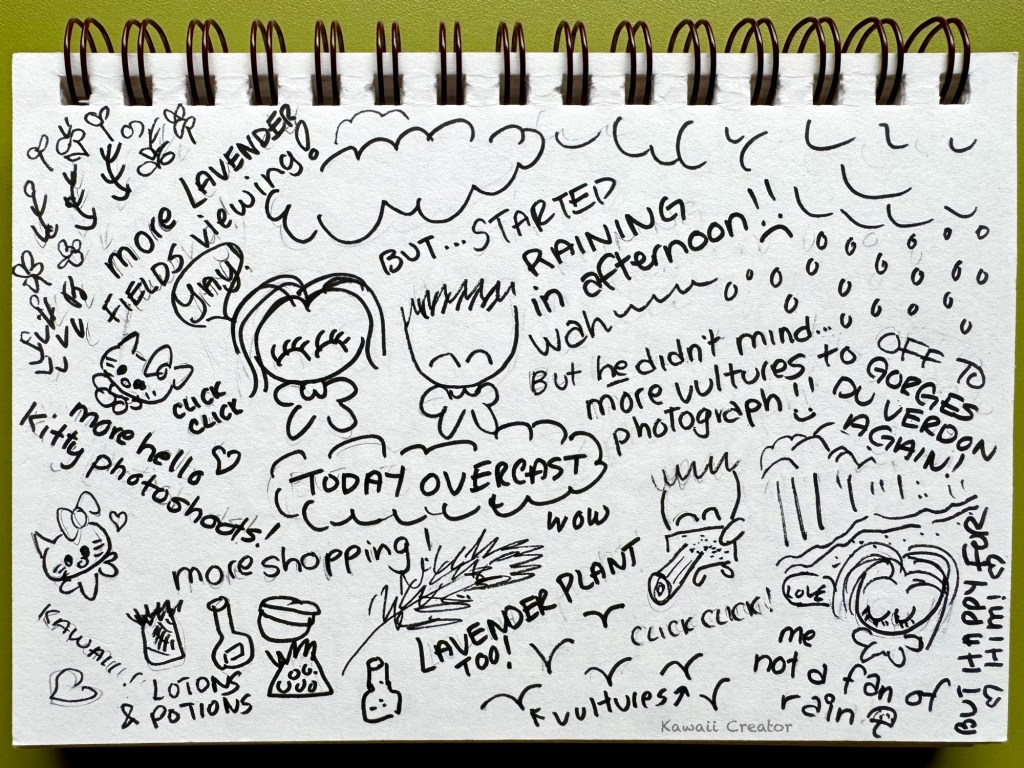 more LAVENDER
FIELDS viewing!
YAY!
BUT...STARTED
RAINING
in afternoon!!
wah
But he didn't mind...
more vultures to
photograph!!
OFF TO
GORGES
DU VERDON
AGAIN!
CLICK
CLICK
more hello
Kitty photoshoots!
TODAY OVERCAST
WOW
more shopping!
LAVENDER PLANT
TOO!
CLICK CLICK!
LOVE
me
not a fan of
rain
BUT HAPPY FOR
HIM!
KAWAIII!!
LOTONS
& POTIONS
vultures
Kawaii Creator